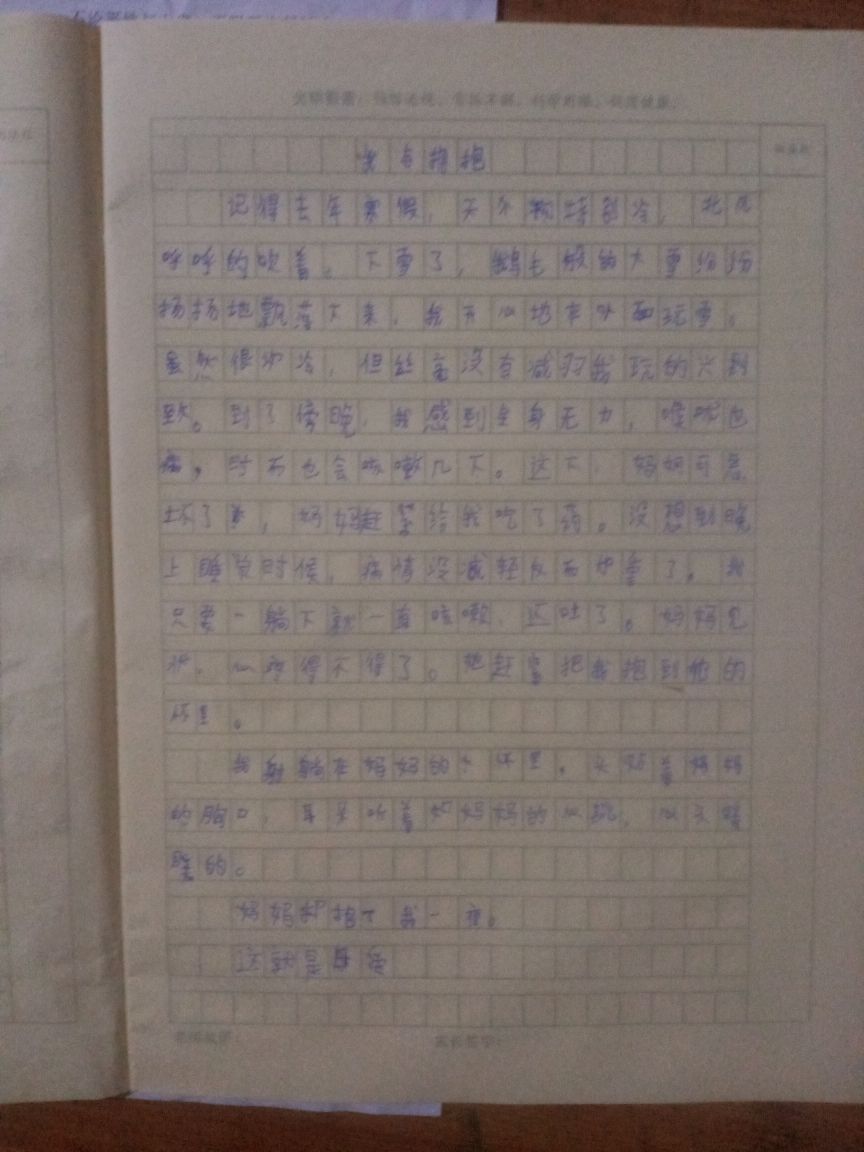 记得去年寒假，天外特别冷，北风
呼呼的吹着。下雪了，鹅毛般的大雪纷纷
扬扬地飘落下来，我开心地在外面玩雪。
虽然很冷，但丝毫没有减弱我玩的兴
致。到了傍晚，我感到全身无力，喉咙也
痛，时而也会咳嗽几下。这下，妈妈可急
坏了，妈妈赶紧给我吃了药。没想到晚
上睡觉时候，病情没减轻反而加重了，我
只要一躺下就一直咳嗽，还吐了。妈妈见
状，心疼得不得了。她赶紧把我抱到她的
怀里。
我躺在妈妈的怀里，头贴着妈妈
的胸口，耳朵听着妈妈的心跳，心头暖
暖的。
妈妈抱了我一夜。
这就是母爱